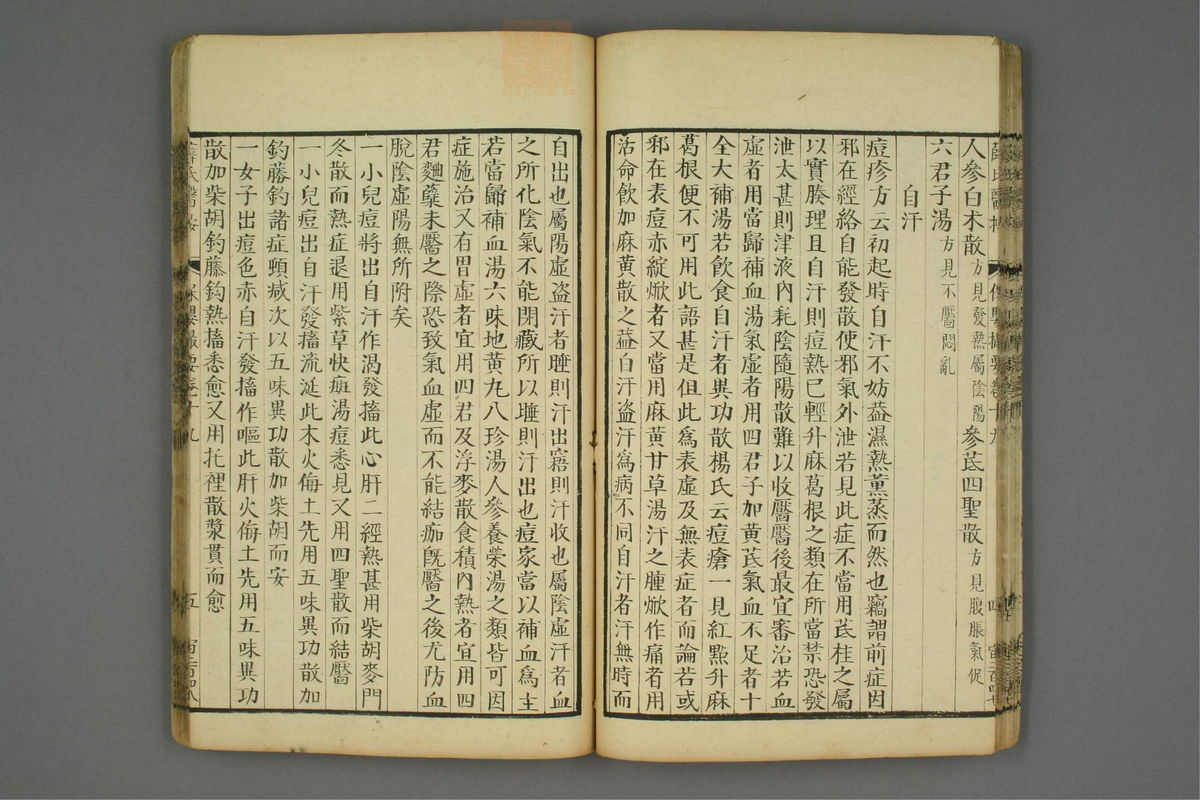 人參白朮散方見發熱屬陰陽 參芪四聖散方見腹脹氣促
六君子湯方見不靨悶亂
自汗
痘疹方云初起時自汗不妨葢濕熱薰蒸而然也竊謂前症因
邪在經絡自能發散使邪氣外泄若見此症不當用芪桂之屬
以實腠理且自汗則痘熱已輕升麻葛根之類在所當禁恐發
泄太甚則津液內耗陰隨陽散難以收靨靨後最宜審治若血
虛者用當歸補血湯氣虛者用四君子加黃芪氣血不足者十
全大補湯若飲食自汗者異功散楊氏云痘瘡一見紅點升麻
葛根便不可用此語甚是但此爲表虛及無表症者而論若或
邪在表痘赤綻焮者又當用麻黃甘草湯汗之腫焮作痛者用
活命飲加麻黃散之葢自汗盜汗爲病不同自汗者汗無時而
自出也屬陽虛盜汗者睡則汗出寤則汗收也屬陰虛汗者血
之所化陰氣不能閉藏所以睡則汗出也痘家當以補血爲主
若當歸補血湯六味地黃九八珍湯人參養榮湯之類皆可因
症施治又有胃虛者宜用四君及浮麥散食積內熱者宜用四
君麯蘖未靨之際恐致氣血虛而不能結痂旣靨之後尤防血
脫陰虛陽無所附矣
一小兒痘將出自汗作渴發搐此心肝二經熱甚用柴胡麥門
冬散而熱症退用紫草快癍湯痘悉見又用四聖散而結靨
一小兒痘出自汗發搐流涎此木火侮土先用五味異功散加
釣藤鈎諸症頓減次以五味異功散加柴胡而安
一女子出痘色赤自汗發搐作嘔此肝火侮土先用五味異功
散加柴胡釣藤鈎熱搐悉愈又用托裡散漿貫而愈